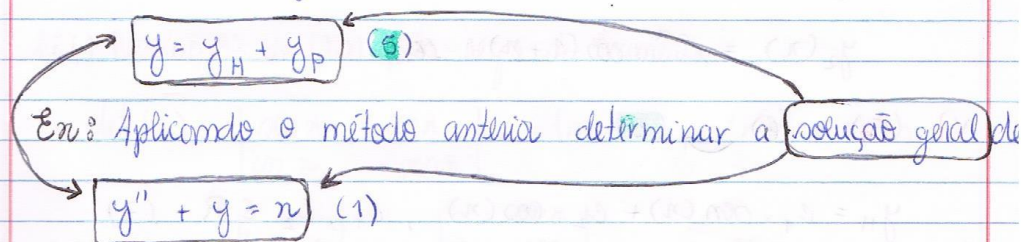 y = y_H + y_P (5)
Ex: Aplicando o método anterior determinar a solução geral de
y'' + y = x (1)